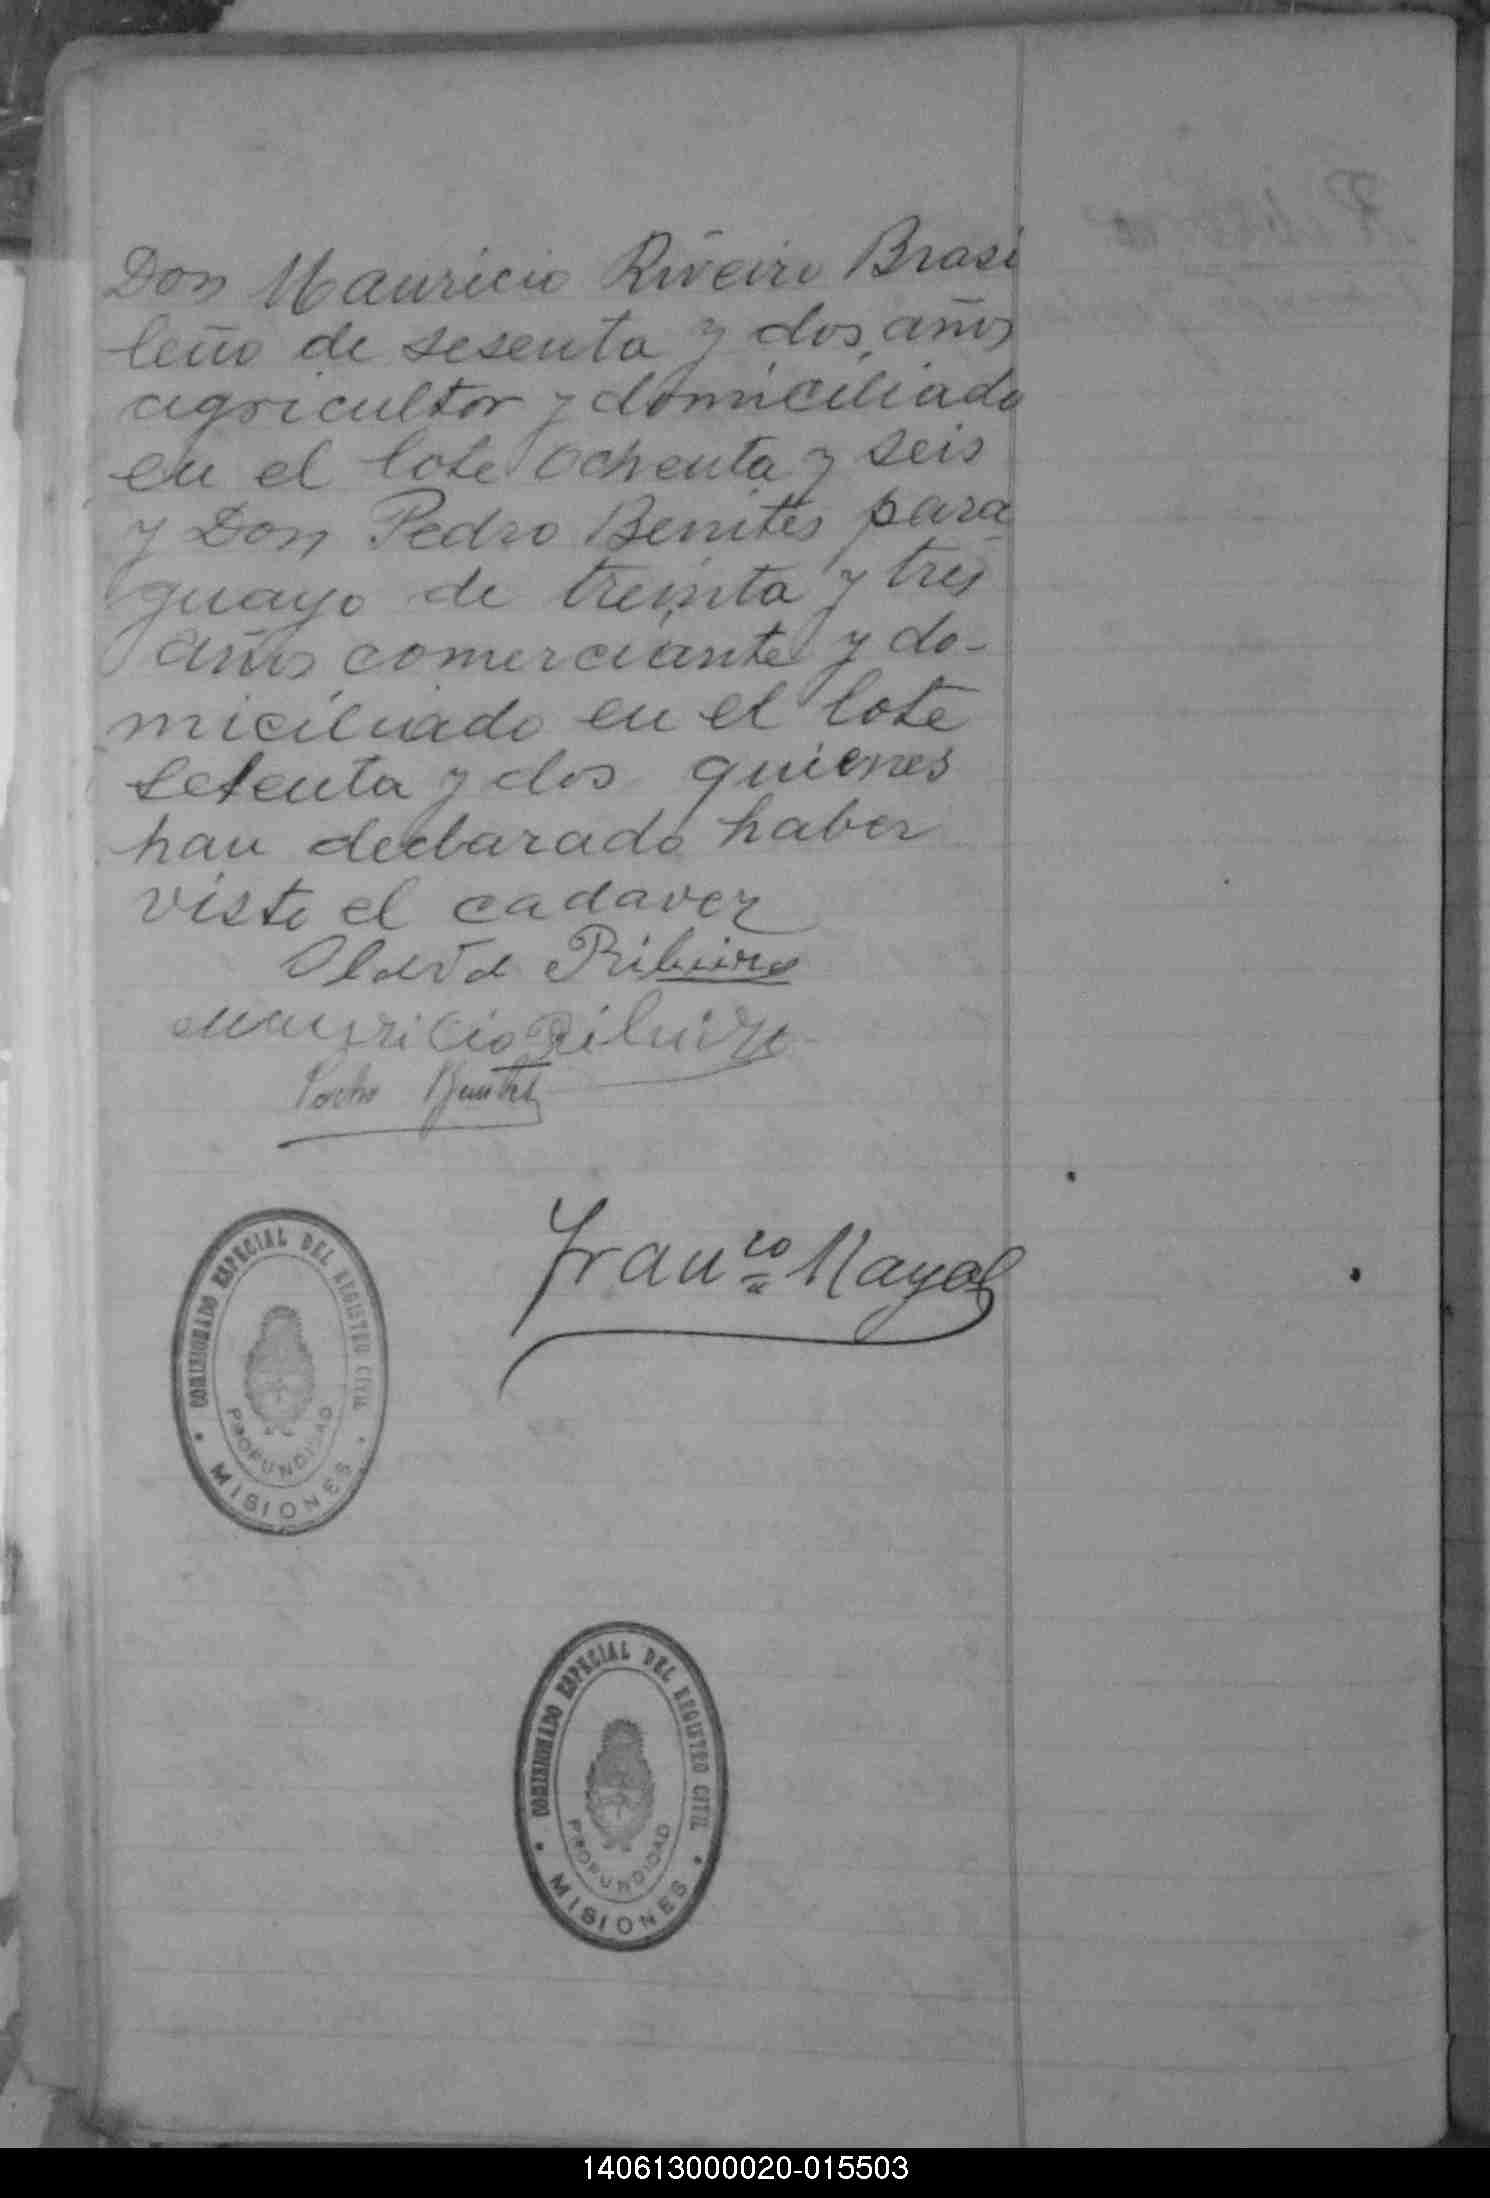 Don Mauricio Riveiro Brasi
leño de sesenta y dos años
agricultor y domiciliado
en el lote ochenta y seis
y Don Pedro Benites para
guayo de treinta y tres
años comerciante y do-
miciliado en el lote
setenta y dos quienes
han declarado haber
visto el cadaver
Ribeiro
Mauricio Ribeiro
Benites
Fran.co Mayol
COMISIONADO ESPECIAL DEL REGISTRO CIVIL
PROFUNDIDAD
MISIONES
COMISIONADO ESPECIAL DEL REGISTRO CIVIL
PROFUNDIDAD
MISIONES
140613000020-015503